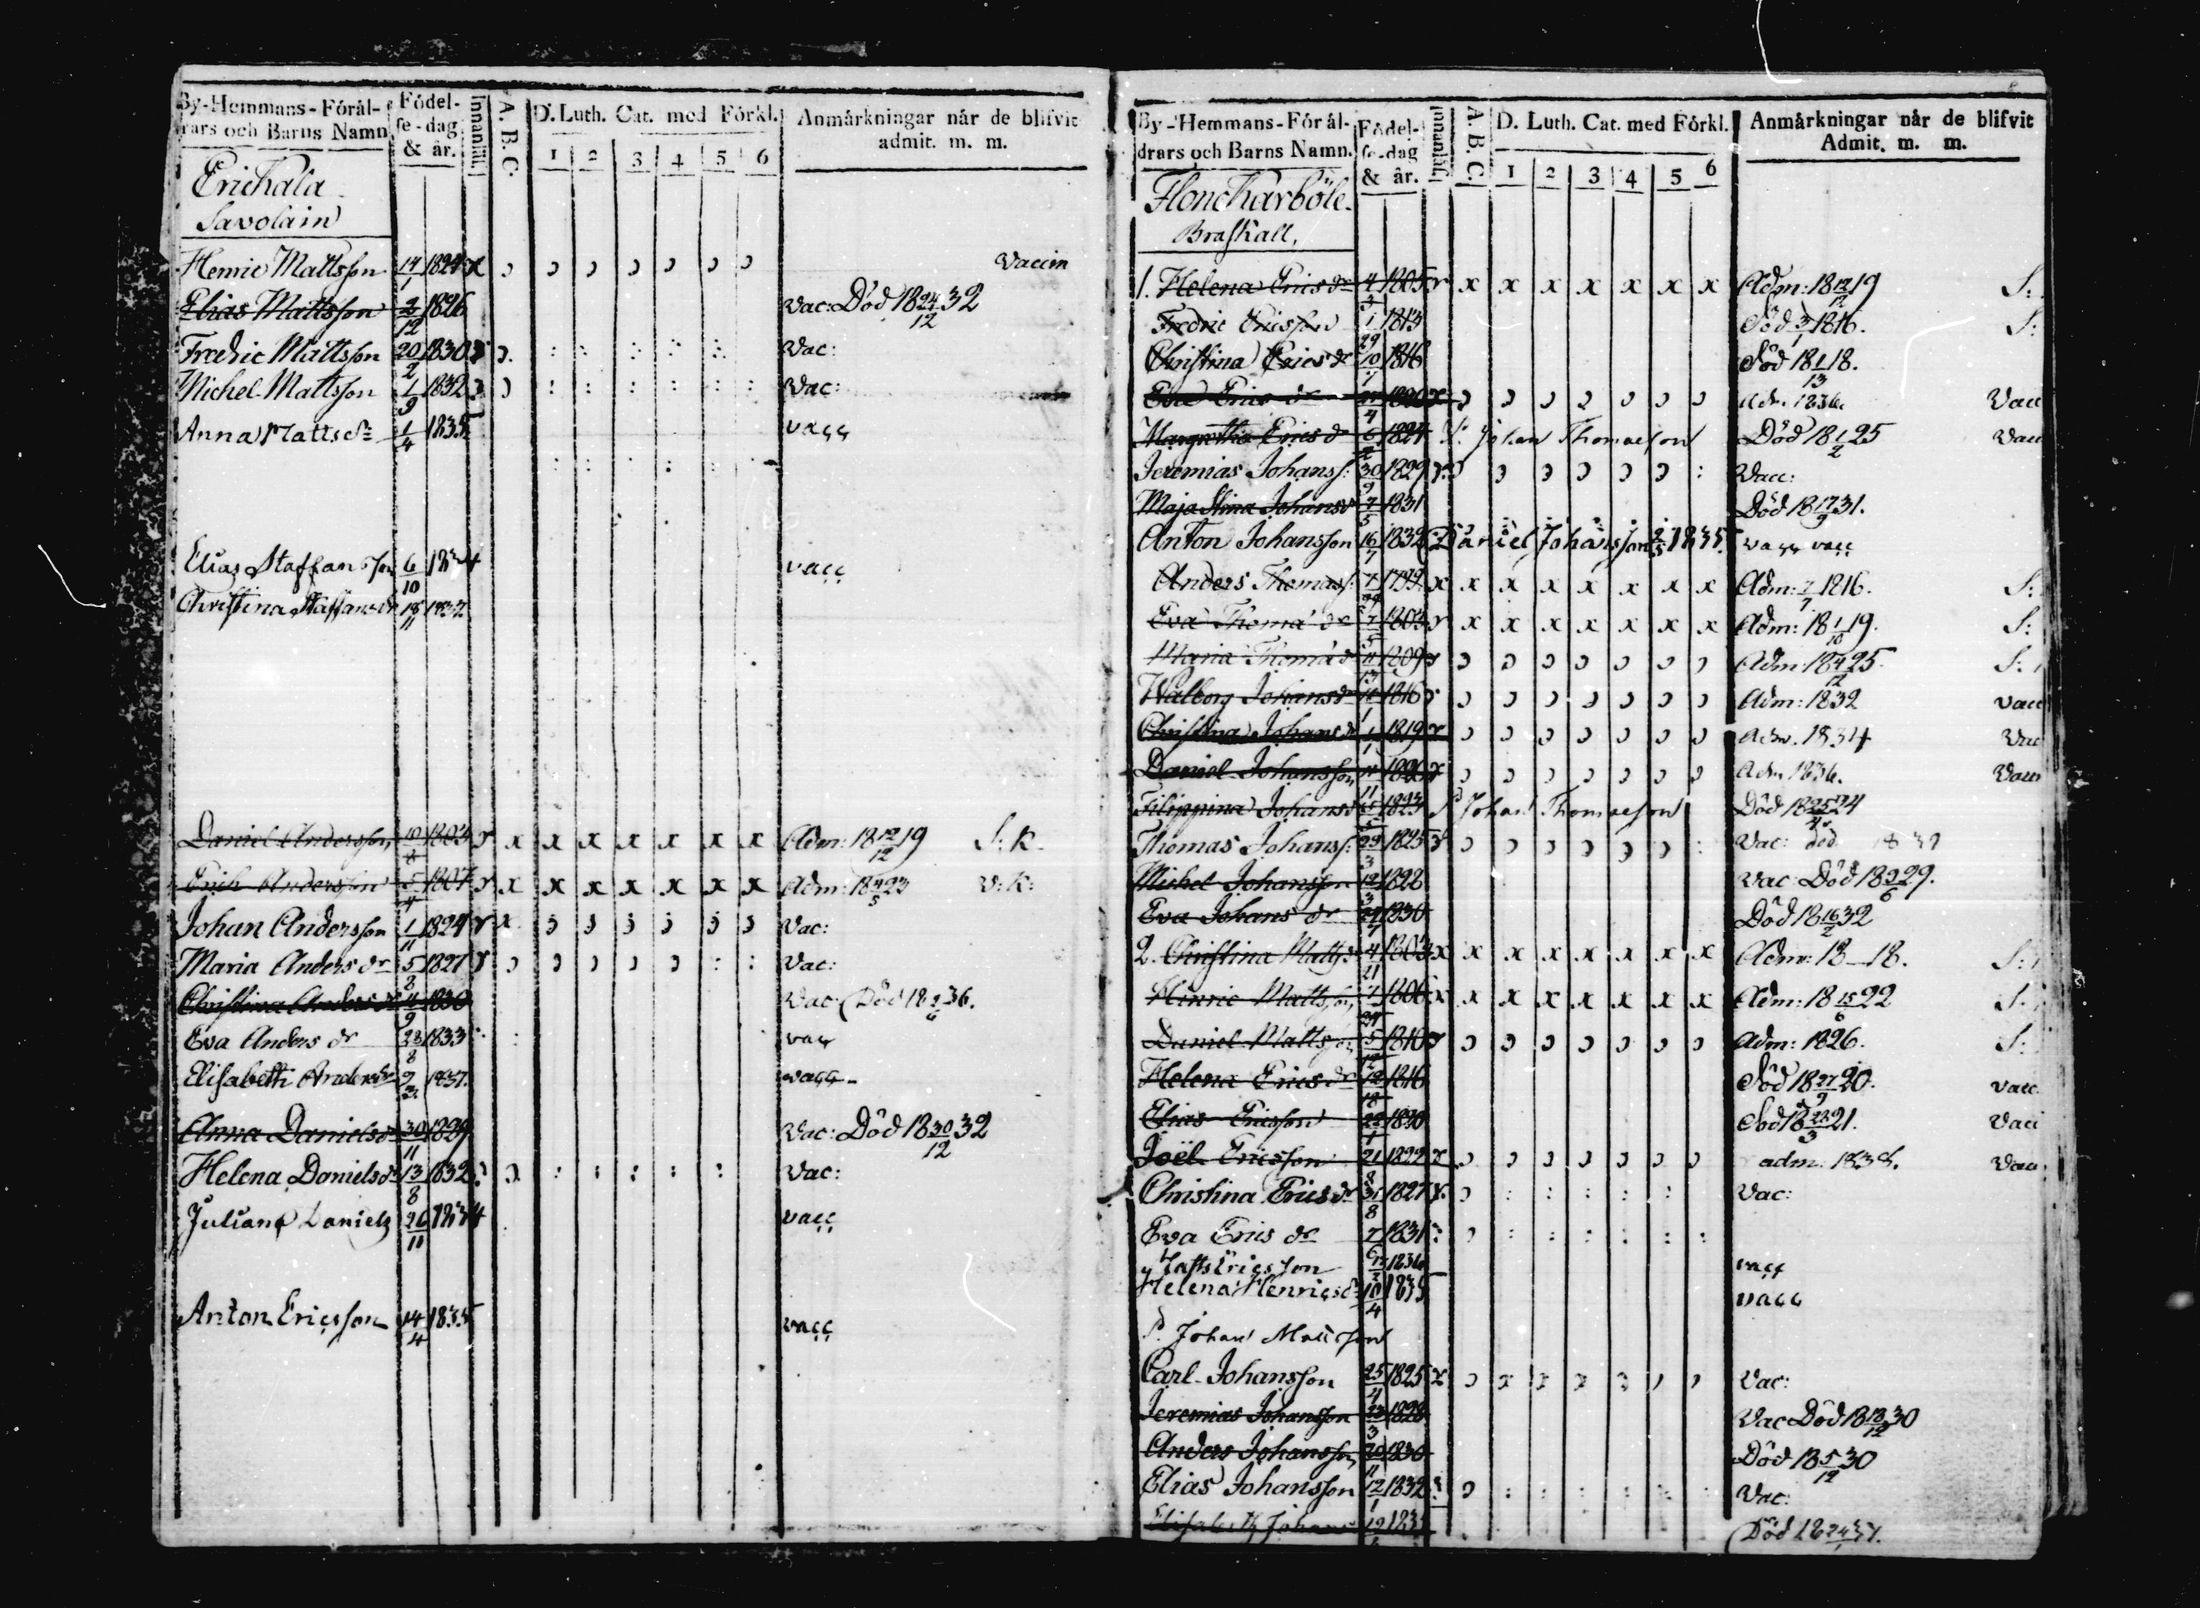 By-Hemmans-Förål-
drars och Barns Namn
Födel-
se-dag
& år.
Innanläs.
A. B. C.
D. Luth. Cat. med Förkl.
1 2 3 4 5 6
Anmärkningar når de blifvit
admit. m. m.
Erichala
Savolain
Henric Mattsson 14/1 1824 x Vaccin
Elias Mattsson 2/12 1826 Vac: Död 18 24/12 32
Fredric Mattsson 20/2 1830 Vac:
Michel Mattsson 1/9 1832 Vac:
Anna Matts dr 1/4 1835 vacc
Elias Staffansson 6/10 1834 vacc
Christina Staffansdr 18/11 1837
Daniel Andersson 10/8 1803 x x x x x x x Adm: 18 12/12 19 S: K.
Erich Andersson 5/4 1807 x x x x x x x Adm: 18 4/5 23 V: K:
Johan Andersson 1/11 1824 x Vac:
Maria Anders dr 5/8 1827 Vac:
Christina Anders dr 11/9 1830 Vac: Död 18 36.
Eva Anders dr 23/8 1833 vacc
Elisabeth Andersdr 9 1837. vacc
Anna Danielsdr 30/11 1829 Vac: Död 18 30/12 32
Helena Danielsdr 13/8 1832 Vac:
Juliana Daniels 26/11 1834 vacc
Anton Ericsson 14/4 1835 vacc
By-Hemmans-Förål-
drars och Barns Namn.
Födel-
se-dag
& år.
Innanläs.
A. B. C.
D. Luth. Cat. med Förkl.
1 2 3 4 5 6
Anmärkningar når de blifvit
Admit. m. m.
Honckarböle
Braskall,
1. Helena Erics dr 4/3 1805 x x x x x x x Adm: 18 12/12 19 S:
Fredric Ericsson 1/29 1813 Död 3/1 1816. S:
Christina Erics dr 10/7 1816 Död 18 1/13 18.
Eva Erics dr 1820 x Adm. 1836. Vacc
Margretha Erics dr 6/2 1824 P: Johan Thomasson Död 18 1/2 25 Vacc
Jeremias Johanss: 30/9 1829 Vacc:
Maja Stina Johansdr 7/5 1831 Död 18 17/9 31.
Anton Johansson 16/7 1832 Daniel Johansson 1835. vacc vacc
Anders Thomass: 7 1799 x x x x x x x x Adm: 7/7 1816. S:
Eva Thomæ dr 7/5 1803 x x x x x x x Adm: 18 1/10 19. S:
Maria Thomædr 11 1809 Adm: 18 4/12 25. S:
Walborg Johansdr 11/1 1816 Adm: 1832 Vacc
Christina Johans dr 1/1 1819 x Adm. 1834 Vac
Daniel Johansson 1820 x Adm 1836. Vacc
Filippina Johansdr 1823 P Johan Thomasson Död 18 25 24
Thomas Johanss: 29/3 1825 Vac: död
Michel Johansson 12/3 1828 Vac: Död 18 3/6 29.
Eva Johans dr 27/7 1830 Död 18 16/2 32
2. Christina Mattsdr 4/21 1803 x x x x x x x x Adm: 18 — 18. S:
Henric Mattsson 1806 x x x x x x x x Adm: 18 15/6 22 S:
Daniel Mattsson 5/12 1810 Adm: 1826. S:
Helena Erics dr 12 1816 Död 18 27/9 20. vacc
Elias Ericsson 22/1 1820 död 18 23/3 21. Vacc
Joël Ericsson 21/8 1822 x adm: 1838. Vacc
Christina Erics dr 31/8 1827 x Vac:
Eva Erics dr 7/6 1831
Matts Ericsson 1836 vacc
Helena Henricsdr 10/4 1835 vacc
P. Johan Mattsson
Carl Johansson 25/4 1825 x Vac:
Jeremias Johansson 23/3 1828 Vac Död 18 18/12 30
Anders Johansson 20/11 1830 Död 18 5/12 30
Elias Johansson 12/1 1832 Vac:
Elisabeth Johans 19 183 Död 18 24 37.